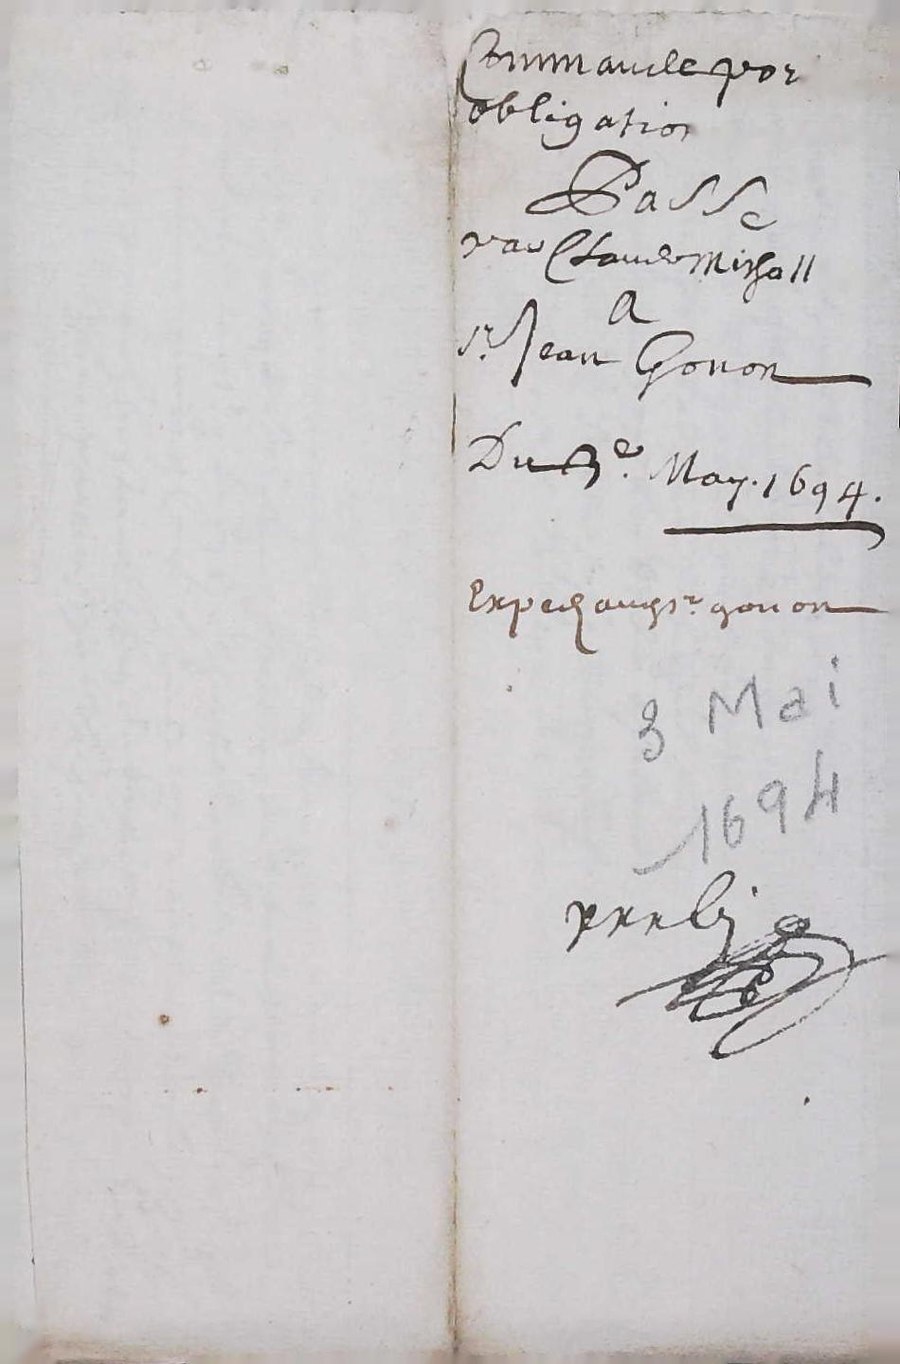 Commande por
obligation
Passe
par Claude Michall
a
Sr. Jean Gonon
Du 3e. May. 1694.
Exped audsr gonon
3 Mai
1694